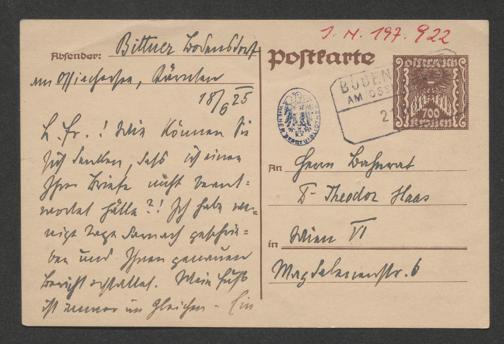 J. N. 197.922
Absender: Bittner Bodensdorf
am Ossiachersee, Kärnten
18/6 25
L. Fr.! Wie können Sie
sich denken, daß ich einen
Ihrer Briefe nicht beant-
wortet hätte?! Ich habe we-
nige Tage darnach geschrie-
ben und Ihnen genauen
Bericht erstattet. Mein Fuß
ist immer im Gleichen - Ein
Postkarte
BODEN
AM OSS
2
Österreich
700
Kronen
An Herrn Bahnrat
Dr Theodor Haas
in Wien VI
Magdalenenstr. 6